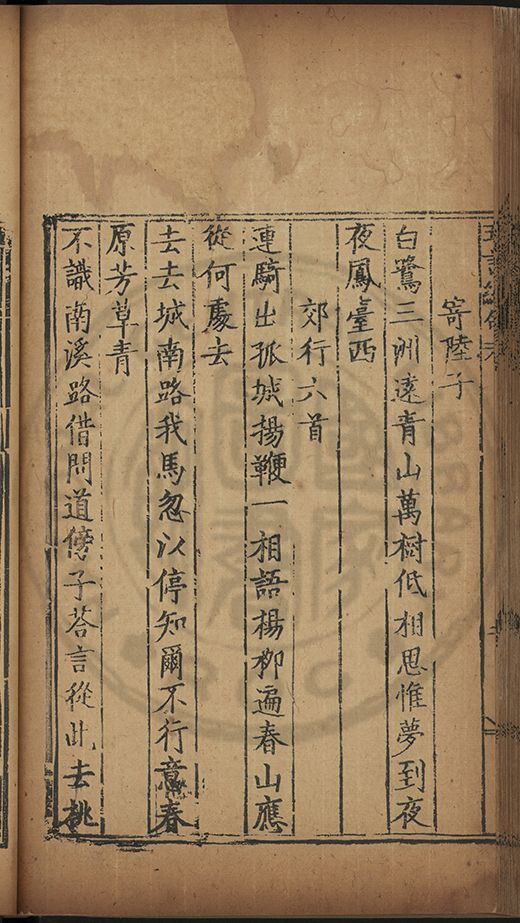 寄陸子
白鷺三洲遠青山萬樹低相思惟夢到夜
夜鳳臺西
郊行六首
連騎出孤城揚鞭一相語楊柳遍春山應
從何處去
去去城南路我馬忽以停知爾不行意春
原芳草青
不識南溪路借問道傍子荅言從此去桃